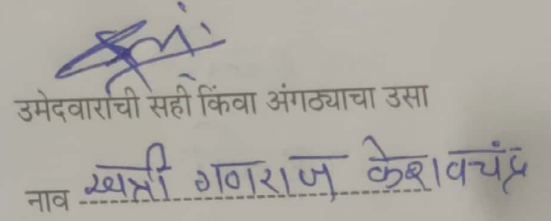 उमेदवाराची सही किंवा अंगठ्याचा उसा
नाव खत्री गणराज केशवचंद्र